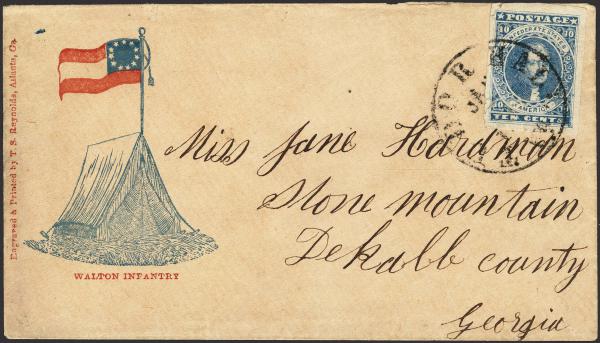 Engraved & Printed by T. S. Reynolds, Atlanta, Ga.
WALTON INFANTRY
POSTAGE
10 10
CONFEDERATE STATES
OF AMERICA
TEN CENTS
Miss Jane Hardman
Stone mountain
Dekalb county
Georgia